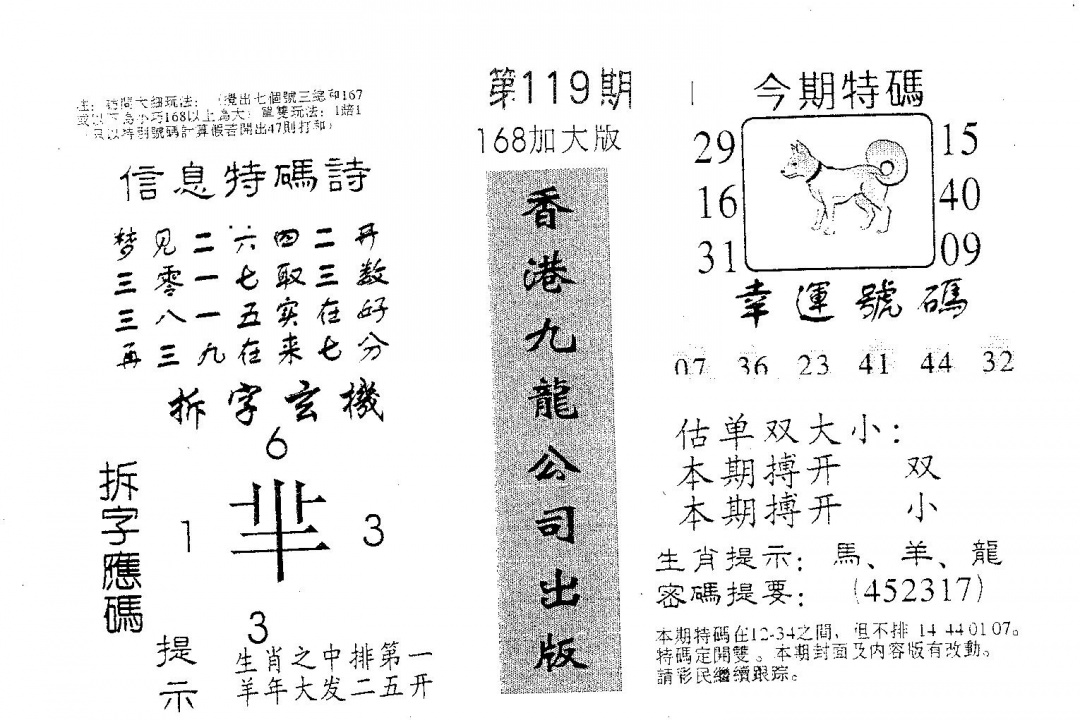 注：訪問大细玩法：（攪出七個號三總和167
或以下為小巧168以上為大）單雙玩法：1賠1
（只以特别號碼計算假若開出47則打和）
信息特碼詩
梦见二六四二开
三零一七取三数
三八一五实在好
再三九在来七分
拆字玄機
6
1
3
3
拆字應碼
提示
生肖之中排第一
羊年大发二五开
第119期
168加大版
香港九龍公司出版
今期特碼
29 15
16 40
31 09
幸運號碼
07 36 23 41 44 32
估单双大小：
本期搏开 双
本期搏开 小
生肖提示：馬、羊、龍
密碼提要：（452317）
本期特碼在12-34之間，但不排 14 44 01 07。
特碼定開雙。本期封面及内容版有改動。
請彩民繼續跟踪。